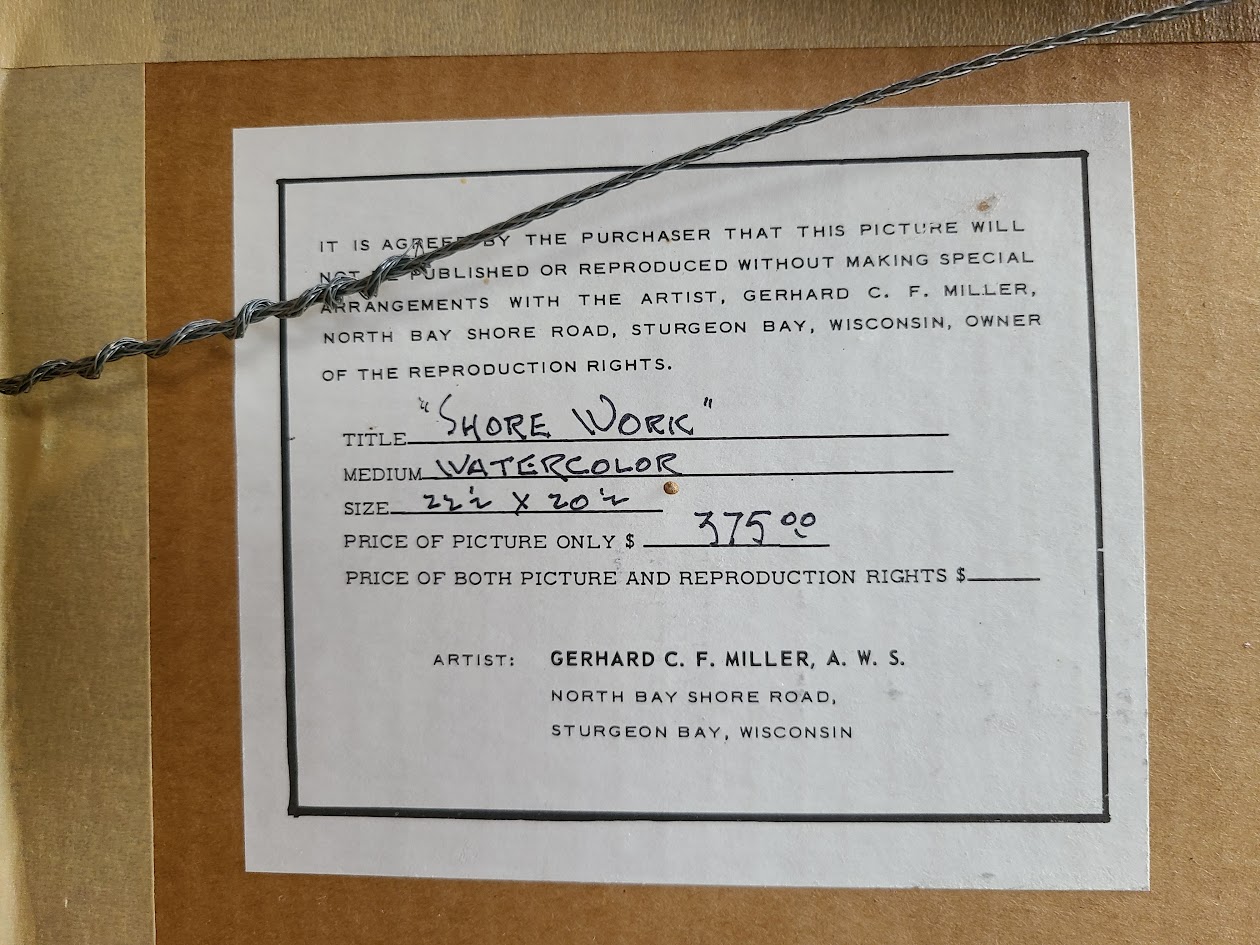 IT IS AGREED BY THE PURCHASER THAT THIS PICTURE WILL
NOT BE PUBLISHED OR REPRODUCED WITHOUT MAKING SPECIAL
ARRANGEMENTS WITH THE ARTIST, GERHARD C. F. MILLER,
NORTH BAY SHORE ROAD, STURGEON BAY, WISCONSIN, OWNER
OF THE REPRODUCTION RIGHTS.
TITLE "SHORE WORK"
MEDIUM WATERCOLOR
SIZE 22½ X 20½
PRICE OF PICTURE ONLY $ 375.00
PRICE OF BOTH PICTURE AND REPRODUCTION RIGHTS $
ARTIST: GERHARD C. F. MILLER, A. W. S.
NORTH BAY SHORE ROAD,
STURGEON BAY, WISCONSIN